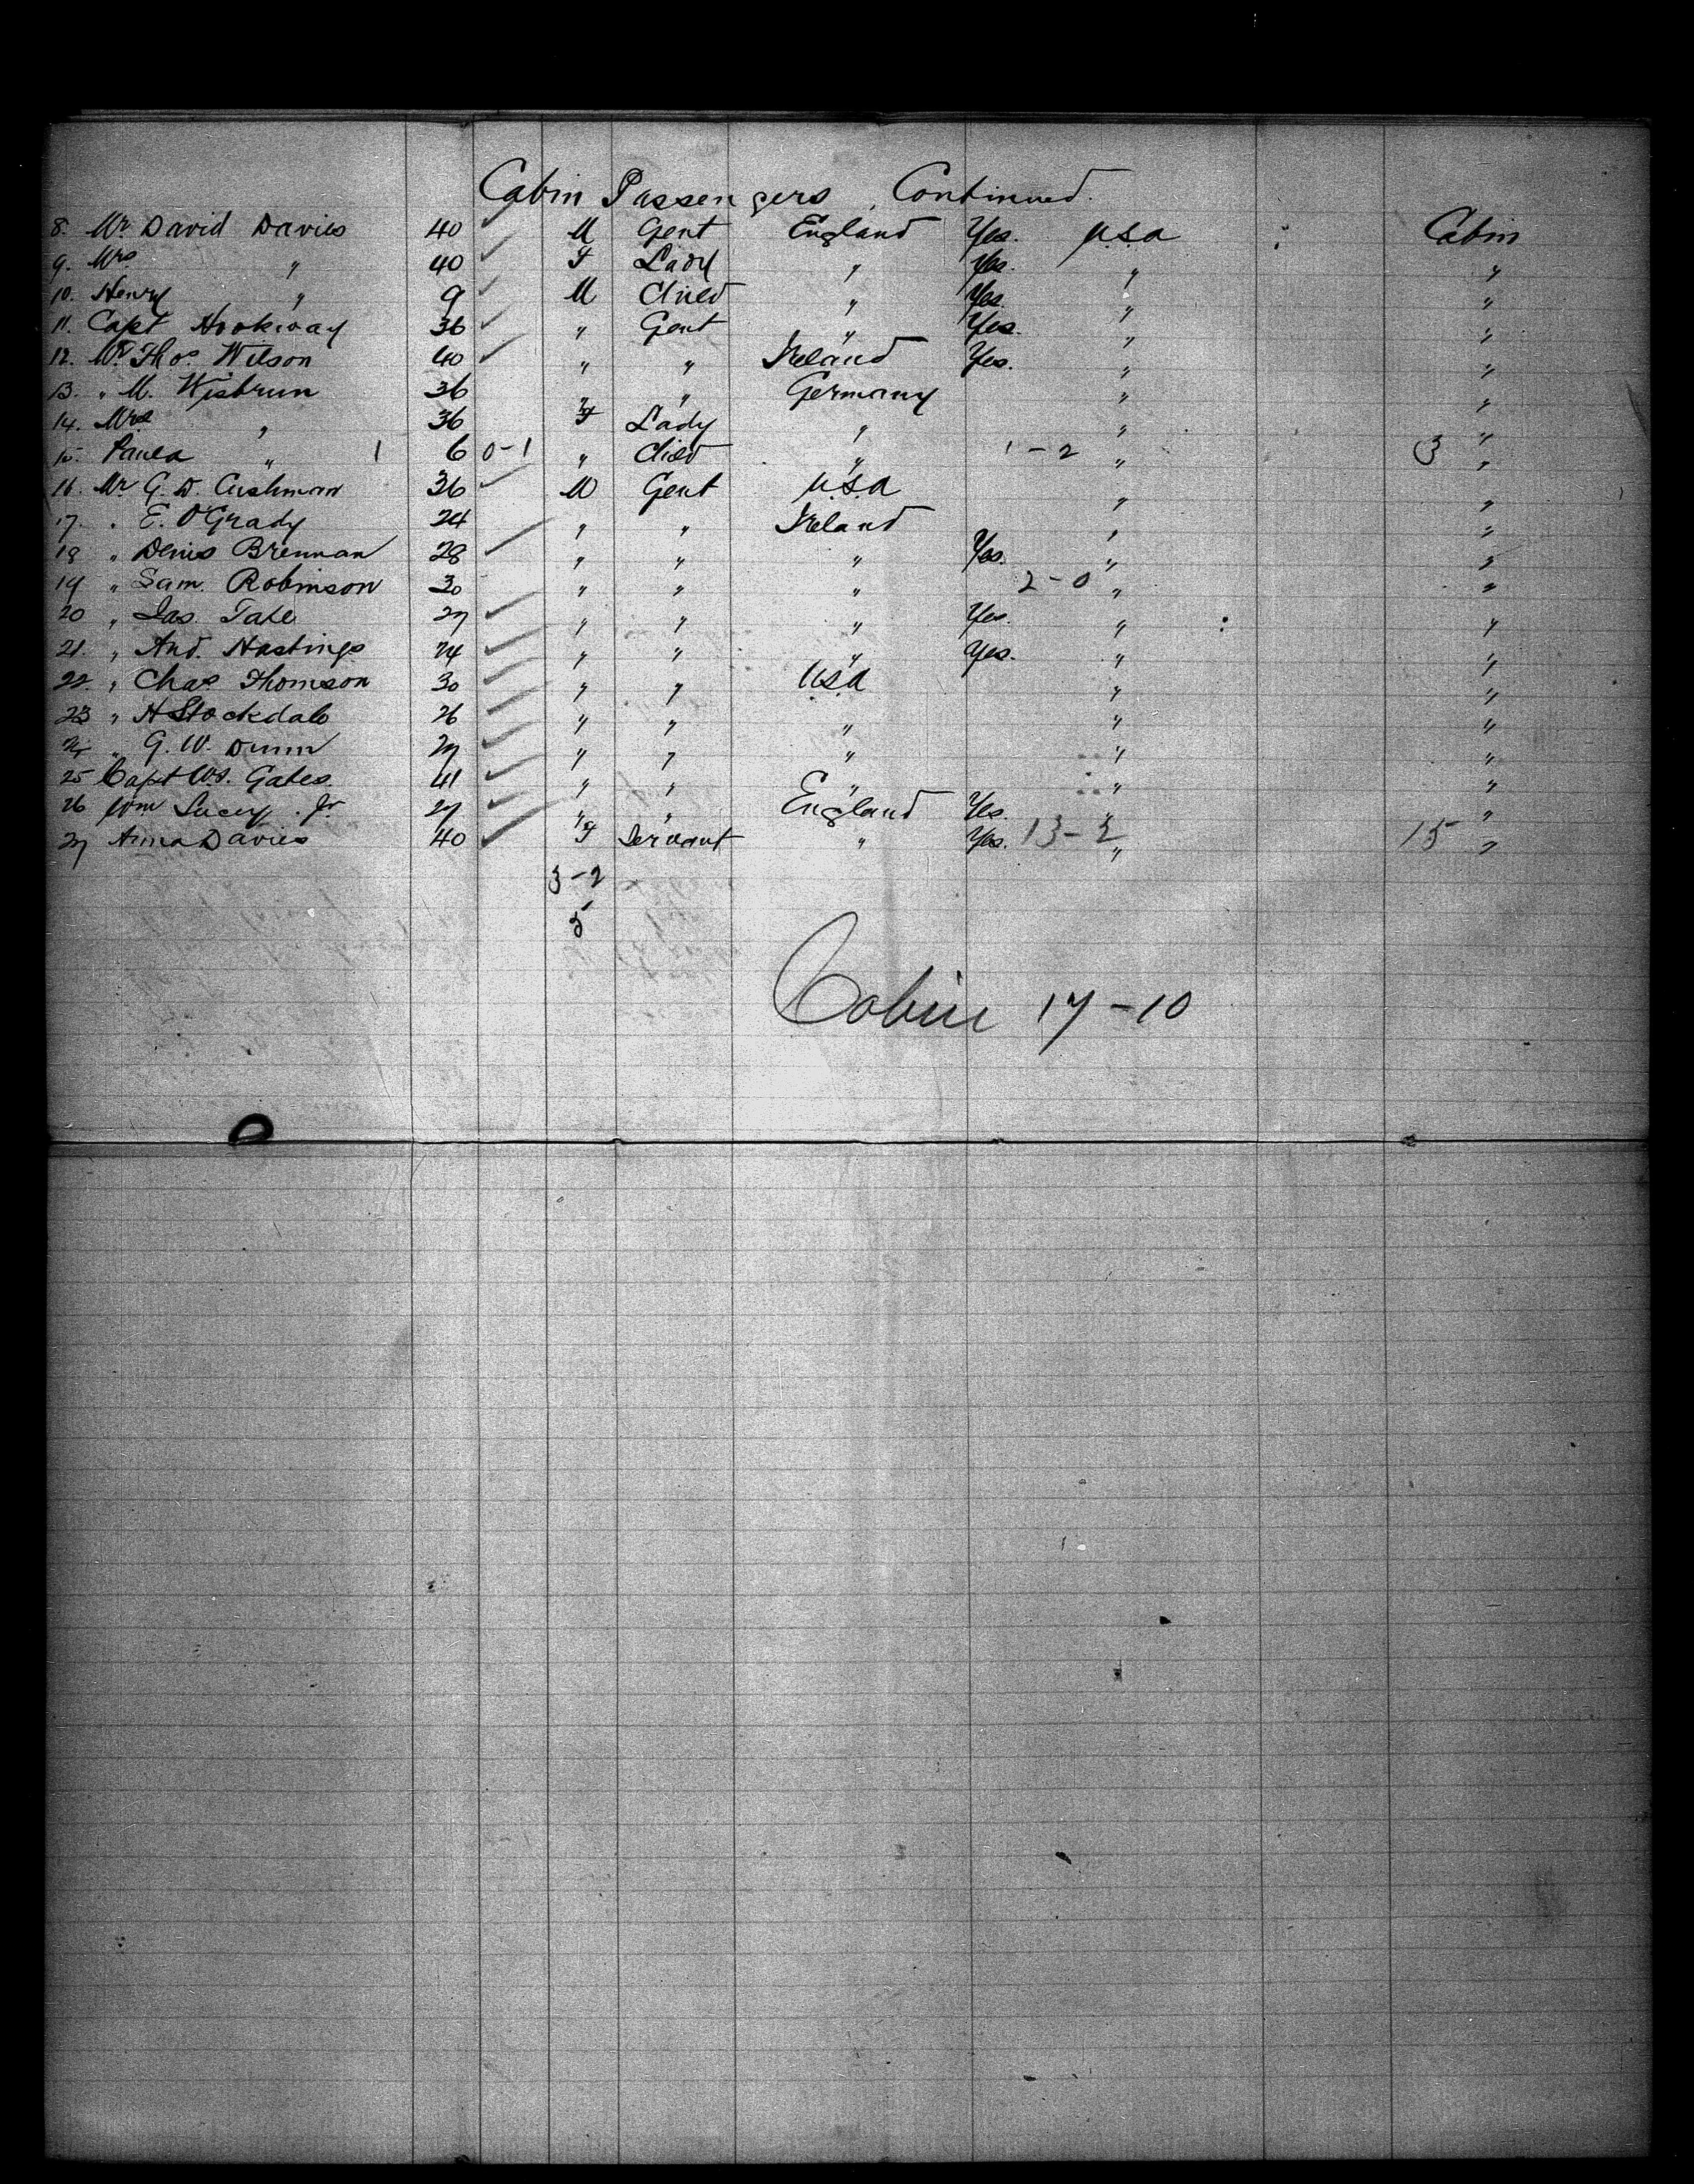 Cabin Passengers, Continued.
8. Mr David Davies 40 M Gent England Yes. U.S.A Cabin
9. Mrs " 40 F Lady " Yes. " "
10. Henry " 9 M Child " Yes. " "
11. Capt Hookway 36 " Gent " Yes. " "
12. Mr Thos Wilson 40 " " Ireland Yes. " "
13. " M. Wisbrun 36 " " Germany " "
14. Mrs " 36 F Lady " " "
15. Paula " 1 6 0-1 " Child " 1-2 " 3 "
16. Mr G. D. Cushman 36 M Gent U.S.A " "
17. " E. O'Grady 24 " " Ireland " "
18 " Denis Brennan 28 " " " Yes. " "
19 " Sam. Robinson 30 " " " 2-0 " "
20 " Jas. Tate 27 " " " Yes. " "
21. " And. Hastings 24 " " " Yes. " "
22. " Chas Thomson 30 " " U.S.A " "
23 " H Stockdale 26 " " " " "
24 " G. W. Dunn 27 " " " " "
25 Capt Ws. Gates. 41 " " " " "
26 Wm Lucey. Jr. 27 " " England Yes. " "
27 Anna Davies 40 F Servant " Yes. 13-2 " 15 "
3-2
5
Cabin 17-10